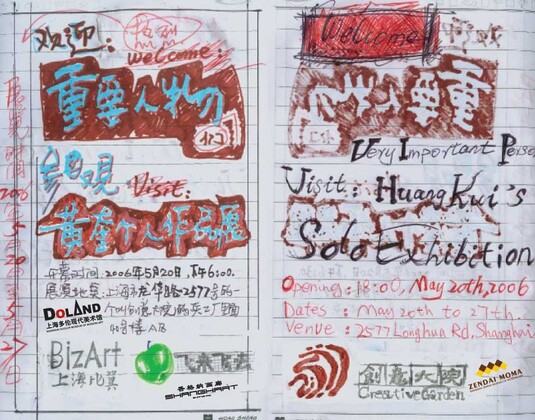 欢迎:
热烈
Welcome:
重要人物
参观
Visit:
黄奎个人作品展
开幕时间:2006年5月20日,下午6:00.
展览地点:上海市龙华路2577号的一
DOLAND
上海多伦现代美术馆
BizArt
上海比翼
飞来飞去
香格纳画廊
SHANGHART
展览时间
2006
5
20
5
27
日
Welcome
Very Important Perso
Visit: HuangKui's
Solo Exhibition
Opening: 18:00, May 20th, 2006
Dates: May 20th to 27th.
Venue: 2577 Longhua Rd, Shanghai
創意大院
Creative Garden
ZENDAI MOMA